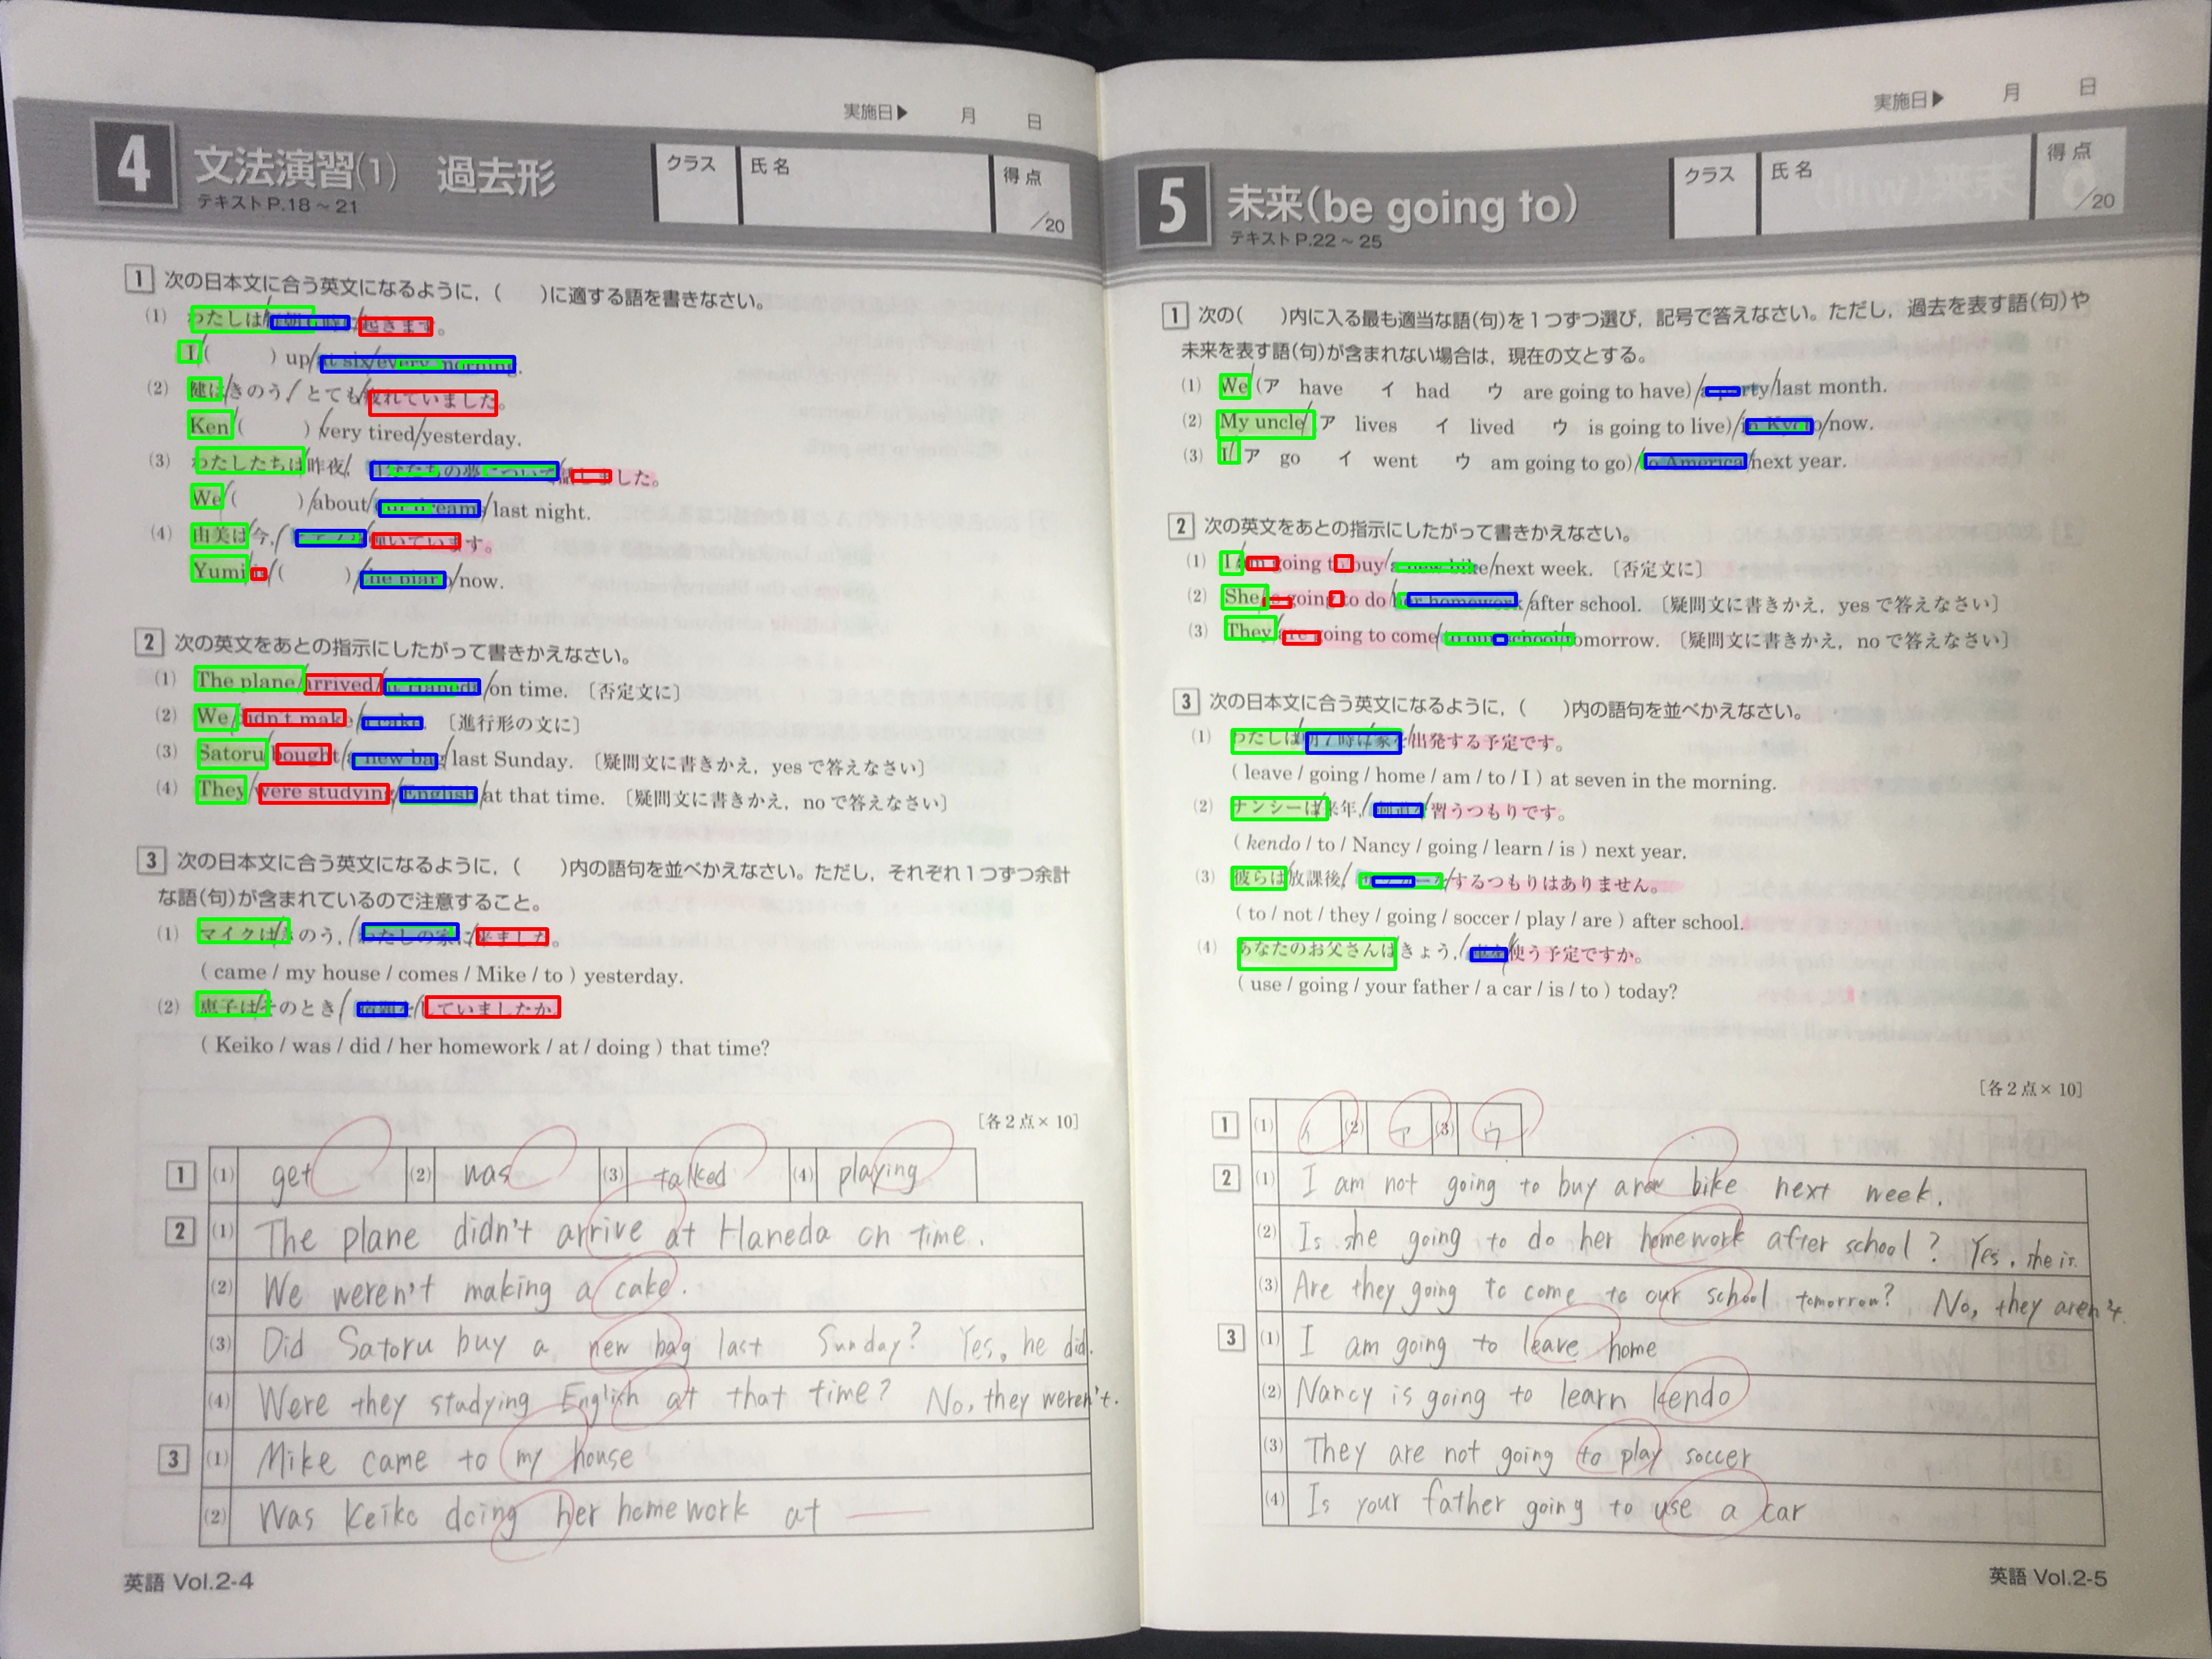 実施日▶ 月 日
4 文法演習(1) 過去形
テキストP.18～21
クラス 氏名 得点 /20
1 次の日本文に合う英文になるように，( )に適する語を書きなさい。
(1) わたしは/毎朝6時に/起きます。
I/( ) up/at six/every morning.
(2) 健は/きのう,/とても/疲れていました。
Ken/( )/very tired/yesterday.
(3) わたしたちは/昨夜/ 自分たちの夢について/話しました。
We/( )/about/our dream/last night.
(4) 由美は/今,/ピアノを/弾いています。
Yumi/is/( )/the piano/now.
2 次の英文をあとの指示にしたがって書きかえなさい。
(1) The plane/arrived/at Haneda/on time. 〔否定文に〕
(2) We/didn't make/a cake. 〔進行形の文に〕
(3) Satoru/bought/a new bag/last Sunday. 〔疑問文に書きかえ，yesで答えなさい〕
(4) They/were studying/English/at that time. 〔疑問文に書きかえ，noで答えなさい〕
3 次の日本文に合う英文になるように，( )内の語句を並べかえなさい。ただし，それぞれ1つずつ余計
な語(句)が含まれているので注意すること。
(1) マイクは/きのう,/わたしの家に/来ました。
( came / my house / comes / Mike / to ) yesterday.
(2) 恵子は/そのとき/宿題を/していましたか。
( Keiko / was / did / her homework / at / doing ) that time?
[各2点×10]
1 (1) get (2) was (3) talked (4) playing
2 (1) The plane didn't arrive at Haneda on time.
(2) We weren't making a cake.
(3) Did Satoru buy a new bag last Sunday? Yes, he did.
(4) Were they studying English at that time? No, they weren't.
3 (1) Mike came to my house
(2) Was Keiko doing her homework at
英語 Vol.2-4
実施日▶ 月 日
5 未来(be going to)
テキストP.22～25
クラス 氏名 得点 /20
1 次の( )内に入る最も適当な語(句)を1つずつ選び，記号で答えなさい。ただし，過去を表す語(句)や
未来を表す語(句)が含まれない場合は，現在の文とする。
(1) We/(ア have イ had ウ are going to have)/a party/last month.
(2) My uncle/(ア lives イ lived ウ is going to live)/in Kyoto/now.
(3) I/(ア go イ went ウ am going to go)/to America/next year.
2 次の英文をあとの指示にしたがって書きかえなさい。
(1) I/am going to buy/a new bike/next week. 〔否定文に〕
(2) She/is going to do/her homework/after school. 〔疑問文に書きかえ，yesで答えなさい〕
(3) They/are going to come/to our school/tomorrow. 〔疑問文に書きかえ，noで答えなさい〕
3 次の日本文に合う英文になるように，( )内の語句を並べかえなさい。
(1) わたしは/朝7時に/家を/出発する予定です。
( leave / going / home / am / to / I ) at seven in the morning.
(2) ナンシーは/来年,/剣道を/習うつもりです。
( kendo / to / Nancy / going / learn / is ) next year.
(3) 彼らは/放課後,/サッカーを/するつもりはありません。
( to / not / they / going / soccer / play / are ) after school.
(4) あなたのお父さんは/きょう,/車を/使う予定ですか。
( use / going / your father / a car / is / to ) today?
[各2点×10]
1 (1) イ (2) ア (3) ウ
2 (1) I am not going to buy a new bike next week.
(2) Is she going to do her homework after school? Yes, she is.
(3) Are they going to come to our school tomorrow? No, they aren't.
3 (1) I am going to leave home
(2) Nancy is going to learn kendo
(3) They are not going to play soccer
(4) Is your father going to use a car
英語 Vol.2-5